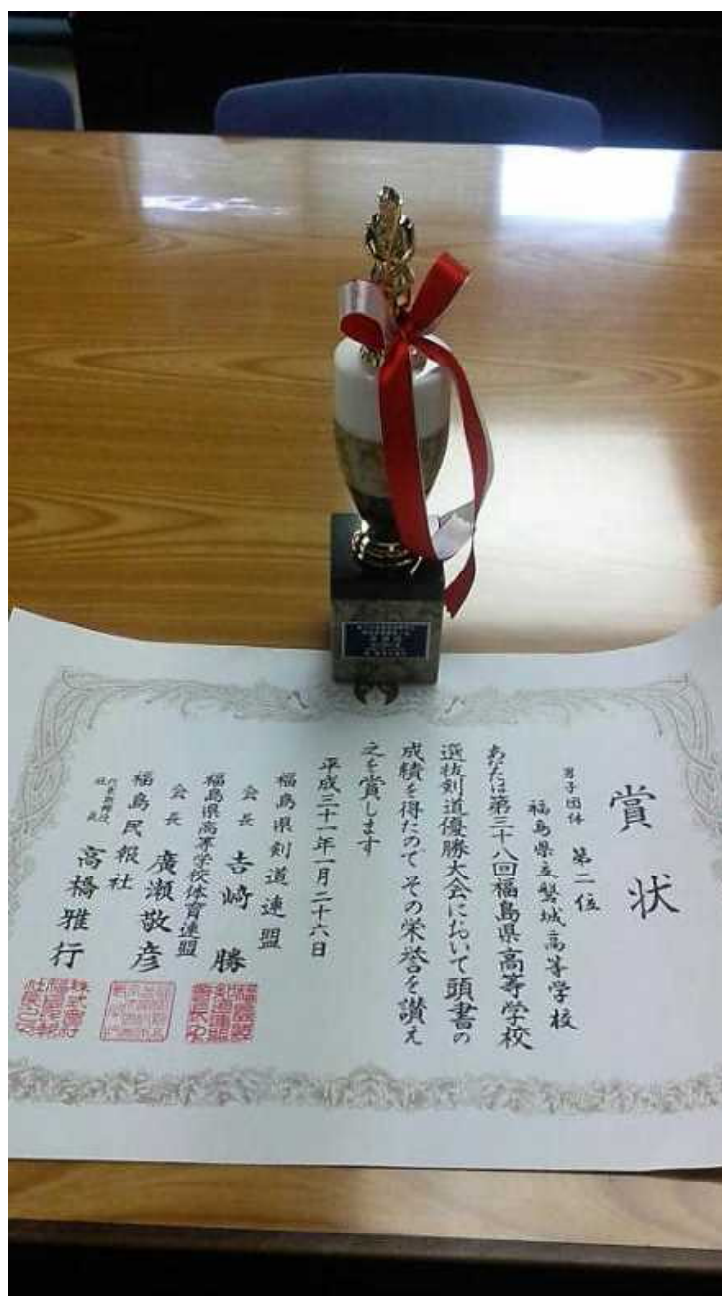 賞状
男子団体 第二位
福島県立磐城高等学校
あなたは第三十八回福島県高等学校
選抜剣道優勝大会において頭書の
成績を得たので その栄誉を讃え
之を賞します
平成三十一年一月二十六日
福島県剣道連盟
会長 吉崎 勝
福島県高等学校体育連盟
会長 廣瀬敬彦
福島民報社
代表取締役社長 高橋雅行